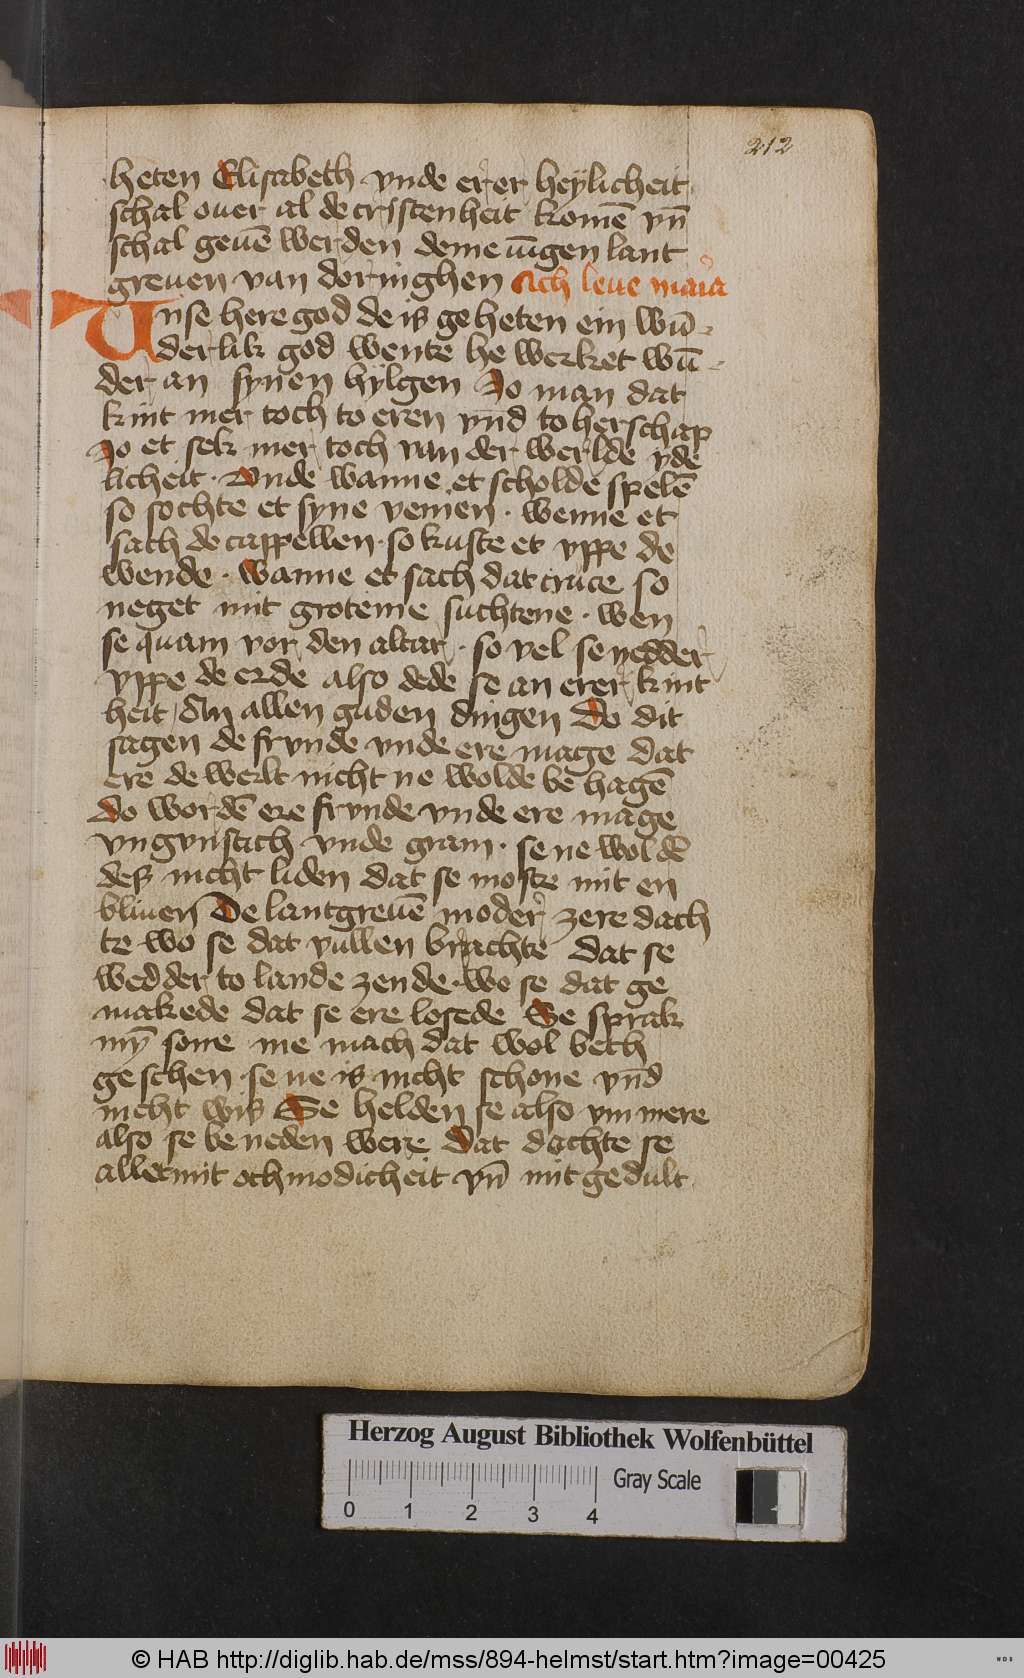 212
heten Elisabeth vnde erer heylicheit
schal ouer al de cristenheit komē vn̄
schal geuē werden deme iūgen lant
greuen van doringhen Ach leue maria
Unse here god de is geheten ein wū-
derlik god wente he werket wū-
der an synen hylgen Jo man dat
kint mer toch to eren vnd to herschap
Jo et sek mer toch van der werlde yde
licheit · Vnde wanne et scholde spelē
so sochte et syne venien · wenne et
sach de cappellen · so kuste et vppe de
wende · wanne et sach dat cruce so
neget mit groteme suchtene · wen
se quam vor den altar · so vel se nedder
vppe de erde also dede se an erer kint
heit An allen guden dingen Do dit
sagen de frunde vnde ere mage dat
ere de werlt nicht ne wolde be hagē
do wordē ere frunde vnde ere mage
vngunstich vnde gram · se ne woldē
des nicht liden dat se moste mit en
bliuen De lantgreuē moder zere dach
te wo se dat vullen brachte dat se
wedder to lande zende · wo se dat ge
makede dat se ere losede Se sprak
my̅ sone me mach dat wol beth
geschen · se ne is nicht schone vn̄d
nicht wis Se helden se also vmmere
also se be neden were Dat dachte se
allet mit othmodicheit vn̄ mit gedult
Herzog August Bibliothek Wolfenbüttel
Gray Scale
0 1 2 3 4
© HAB http://diglib.hab.de/mss/894-helmst/start.htm?image=00425